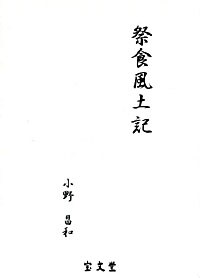 祭食風土記
小野昌和
宝文堂